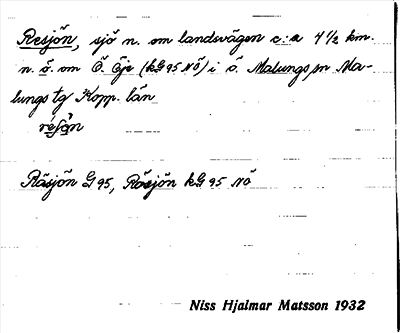 Resjön, sjö n. om landsvägen c:a 4 ½ km.
n. ö. om Ö. Öje (kG 95 NÖ) i ö. Malungs sn Ma-
lungs tg Kopp. län
résǫ̈n
Räsjön G 95, Rösjön kG 95 NÖ
Niss Hjalmar Matsson 1932